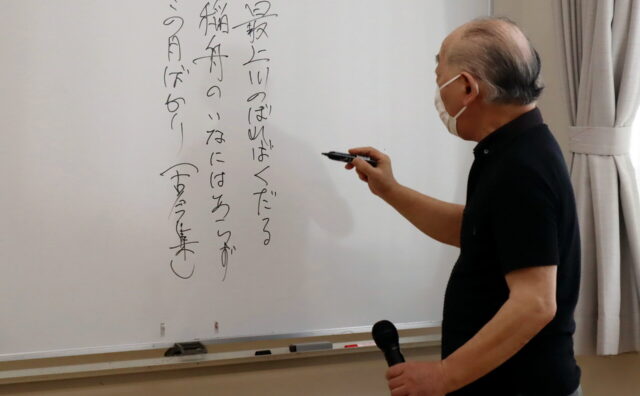 最上川のぼればくだる
稲舟のいなにはあらず
この月ばかり(古今集)